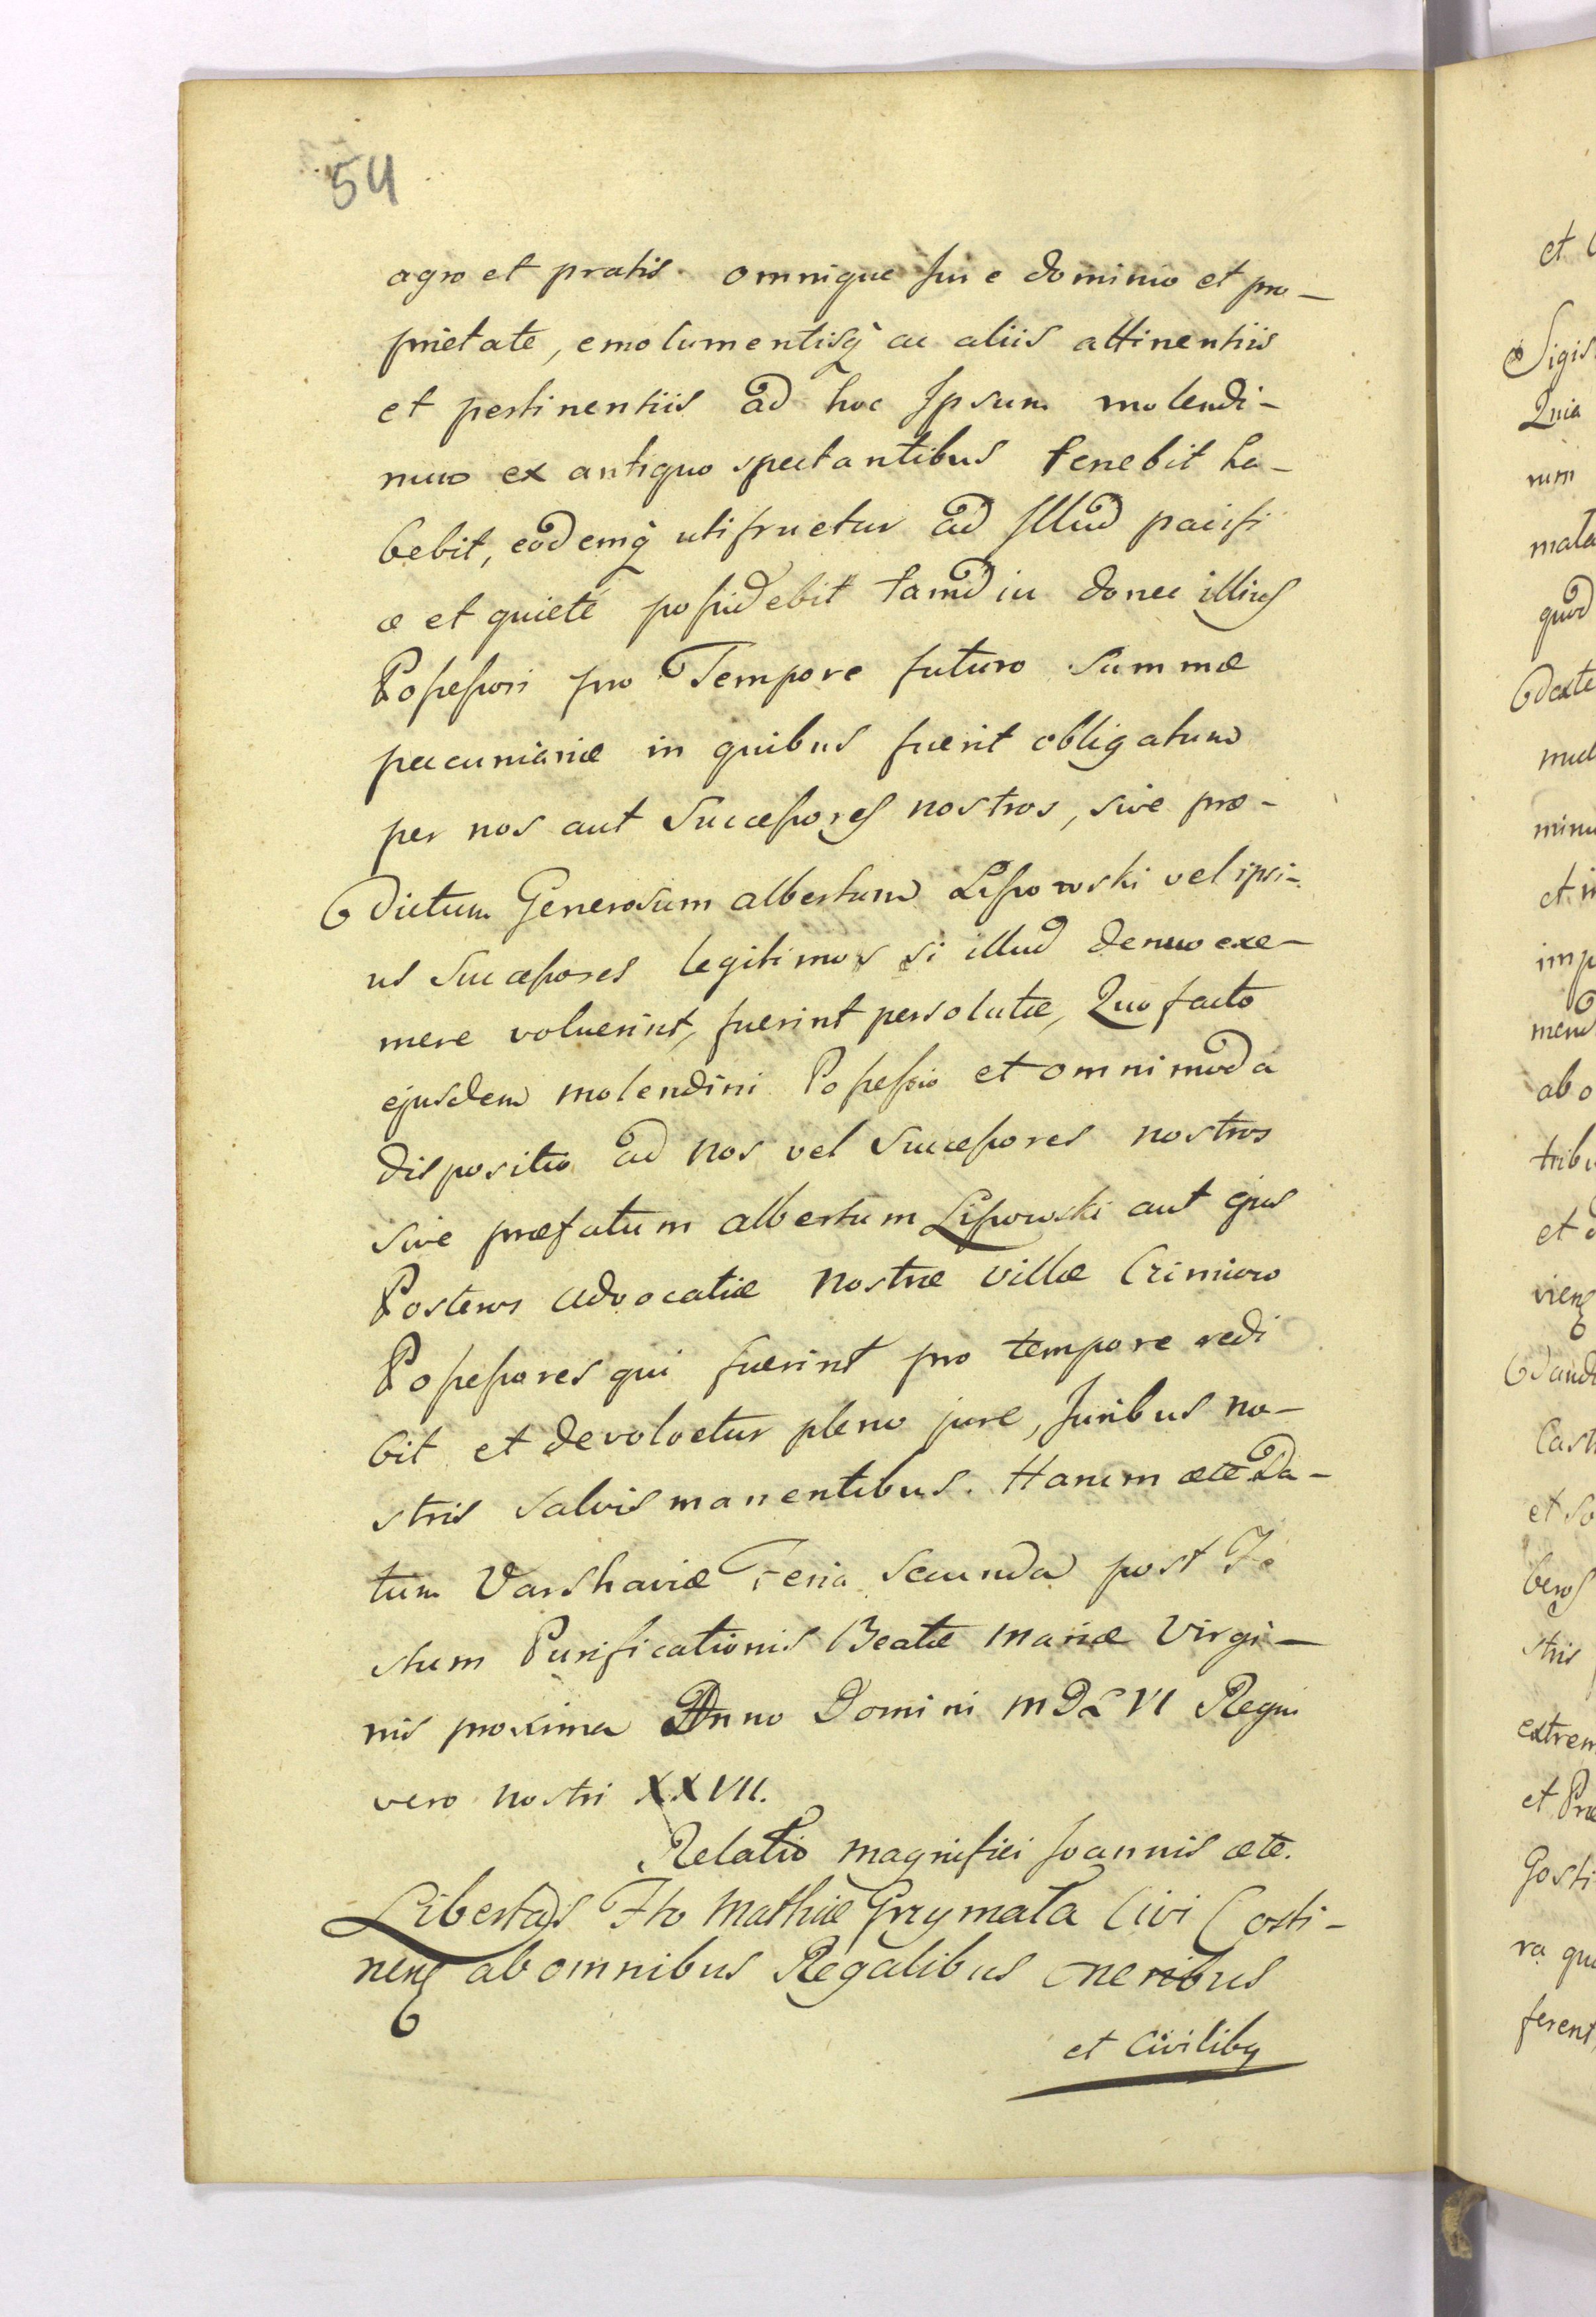 54
agro et pratis omnique Jure dominio et pro-
prietate, emolumentisq̀ ac aliis attinentiis
et pertinentiis ad hoc Ipsum molendi-
num ex antiquo spectantibus tenebit ha-
bebit, eodemq̀ utifruetur ad Illud pacifi
ce et quieté possidebit tamdiu donec illius
Possessori pro Tempore futuro Summæ
pecuniariæ in quibus fuerit obligatum
per nos aut Successores nostros, sive præ-
dictum Generosum albertum Lipowski vel ipsi-
us Successores legitimos si illud denuo exe-
mere voluerint, fuerint persolutæ, Quo facto
ejusdem molendini Possessio et omnimoda
dispositio ad nos vel Successores nostros
sive præfatum albertum Lipowski aut ejus
Posteros advocatiæ nostræ villæ
Possessores qui fuerint pro tempore redi
bit et devolvetur pleno jure, Juribus no-
stris salvis manentibus. Harum ætē Da-
tum Varshaviæ Feria secunda post Fe
stum Purificationis Beatæ Mariæ Virgi-
nis proxima Anno Domini MDLVI Regni
vero nostri XXVII.
Relatio magnifici Joannis ætē.
Libertas Fto Mathiæ Grzymała Civi Costi-
nens ab omnibus Regalibus oneribus
et Civiliby
et
Sigis
Quia
rum
mala
quod
dexte
minu
et in
imp
mend
ab o
tribu
et
viens
dand
Cast
et so
beros
stris
extrem
et Præ
Gosti
ra qu
ferent